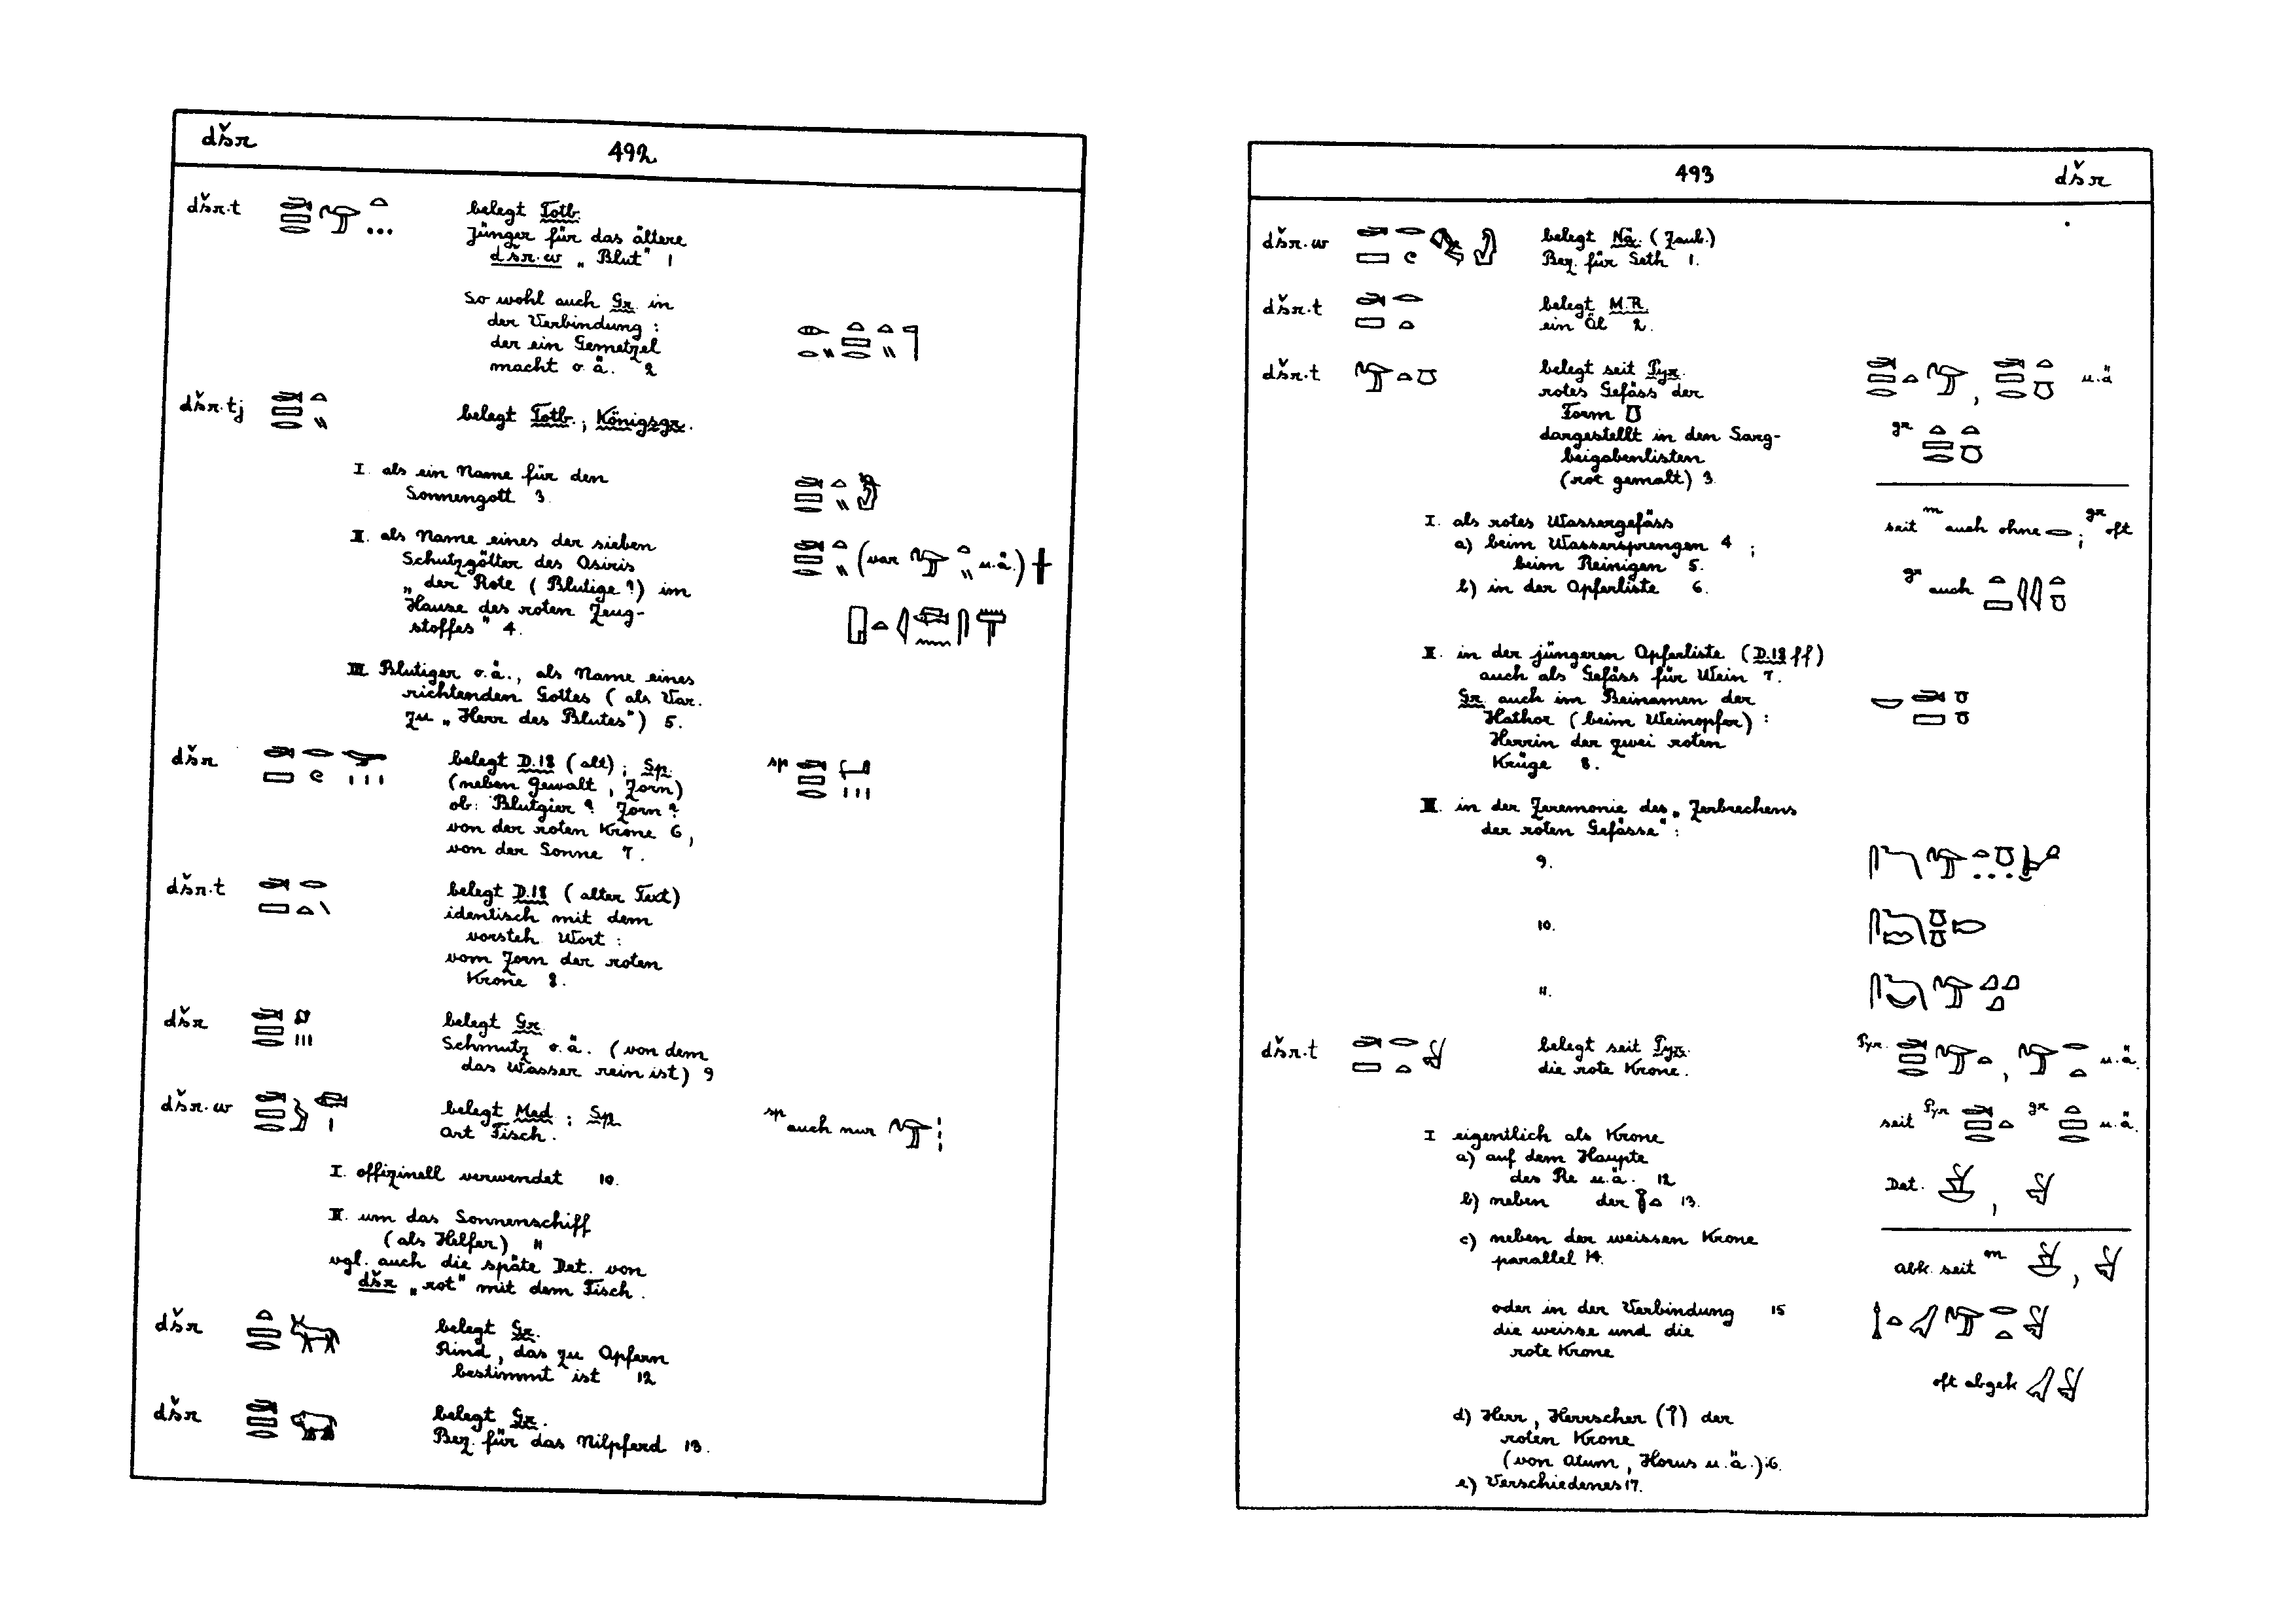 dšr
492
dšr.t
belegt Totb.
Jünger für das ältere
dšr.w „Blut" 1
So wohl auch Gr. in
der Verbindung :
der ein Gemetzel
macht o.ä. 2
dšr.tj
belegt Totb., Königsgr.
I. als ein Name für den
Sonnengott 3.
II. als Name eines der sieben
Schutzgötter des Osiris
„der Rote (Blutige?) im
Hause des roten Zeug-
stoffes" 4.
(var u.ä.)
III Blutiger o.ä., als Name eines
richtenden Gottes (als Var.
zu „Herr des Blutes") 5.
dšr
belegt D.18 (alt); Sp.
(neben Gewalt, Zorn)
ob: Blutgier? Zorn?
von der roten Krone 6,
von der Sonne 7.
sp
dšr.t
belegt D.18 (alter Text)
identisch mit dem
vorsteh. Wort :
vom Zorn der roten
Krone 8.
dšr
belegt Gr.
Schmutz o.ä. (von dem
das Wasser rein ist) 9
dšr.w
belegt Med; Sp.
Art Fisch.
sp auch nur
I. offizinell verwendet 10.
II. um das Sonnenschiff
(als Helfer) 11
vgl. auch die späte Det. von
dšr „rot" mit dem Fisch.
dšr
belegt Gr.
Rind, das zu Opfern
bestimmt ist 12
dšr
belegt Gr.
Bez. für das Nilpferd 13.
493
dšr
dšr.w
belegt Nä. (Zaub.)
Bez. für Seth 1.
dšr.t
belegt M.R.
ein Öl 2.
dšr.t
belegt seit Pyr.
rotes Gefäss der
Form
dargestellt in den Sarg-
beigabenlisten
(rot gemalt) 3.
u.ä
gr
I. als rotes Wassergefäss
a) beim Wassersprengen 4 ;
beim Reinigen 5.
b) in der Opferliste 6.
seit m auch ohne ; gr oft
gr auch
II. in der jüngeren Opferliste (D.18 ff)
auch als Gefäss für Wein 7.
Gr. auch im Beinamen der
Hathor (beim Weinopfer) :
Herrin der zwei roten
Krüge 8.
III. in der Zeremonie des „Zerbrechens
der roten Gefässe" :
9.
10.
11.
dšr.t
belegt seit Pyr.
die rote Krone.
Pyr. , u.ä.
seit Pyr gr u.ä.
I eigentlich als Krone
a) auf dem Haupte
des Re u.ä. 12
b) neben der 13.
Det. ,
c) neben der weissen Krone
parallel 14.
abk. seit m ,
oder in der Verbindung 15
die weisse und die
rote Krone
oft abgek
d) Herr, Herrscher ( ) der
roten Krone
(von Atum, Horus u.ä.) 16.
e) Verschiedenes 17.